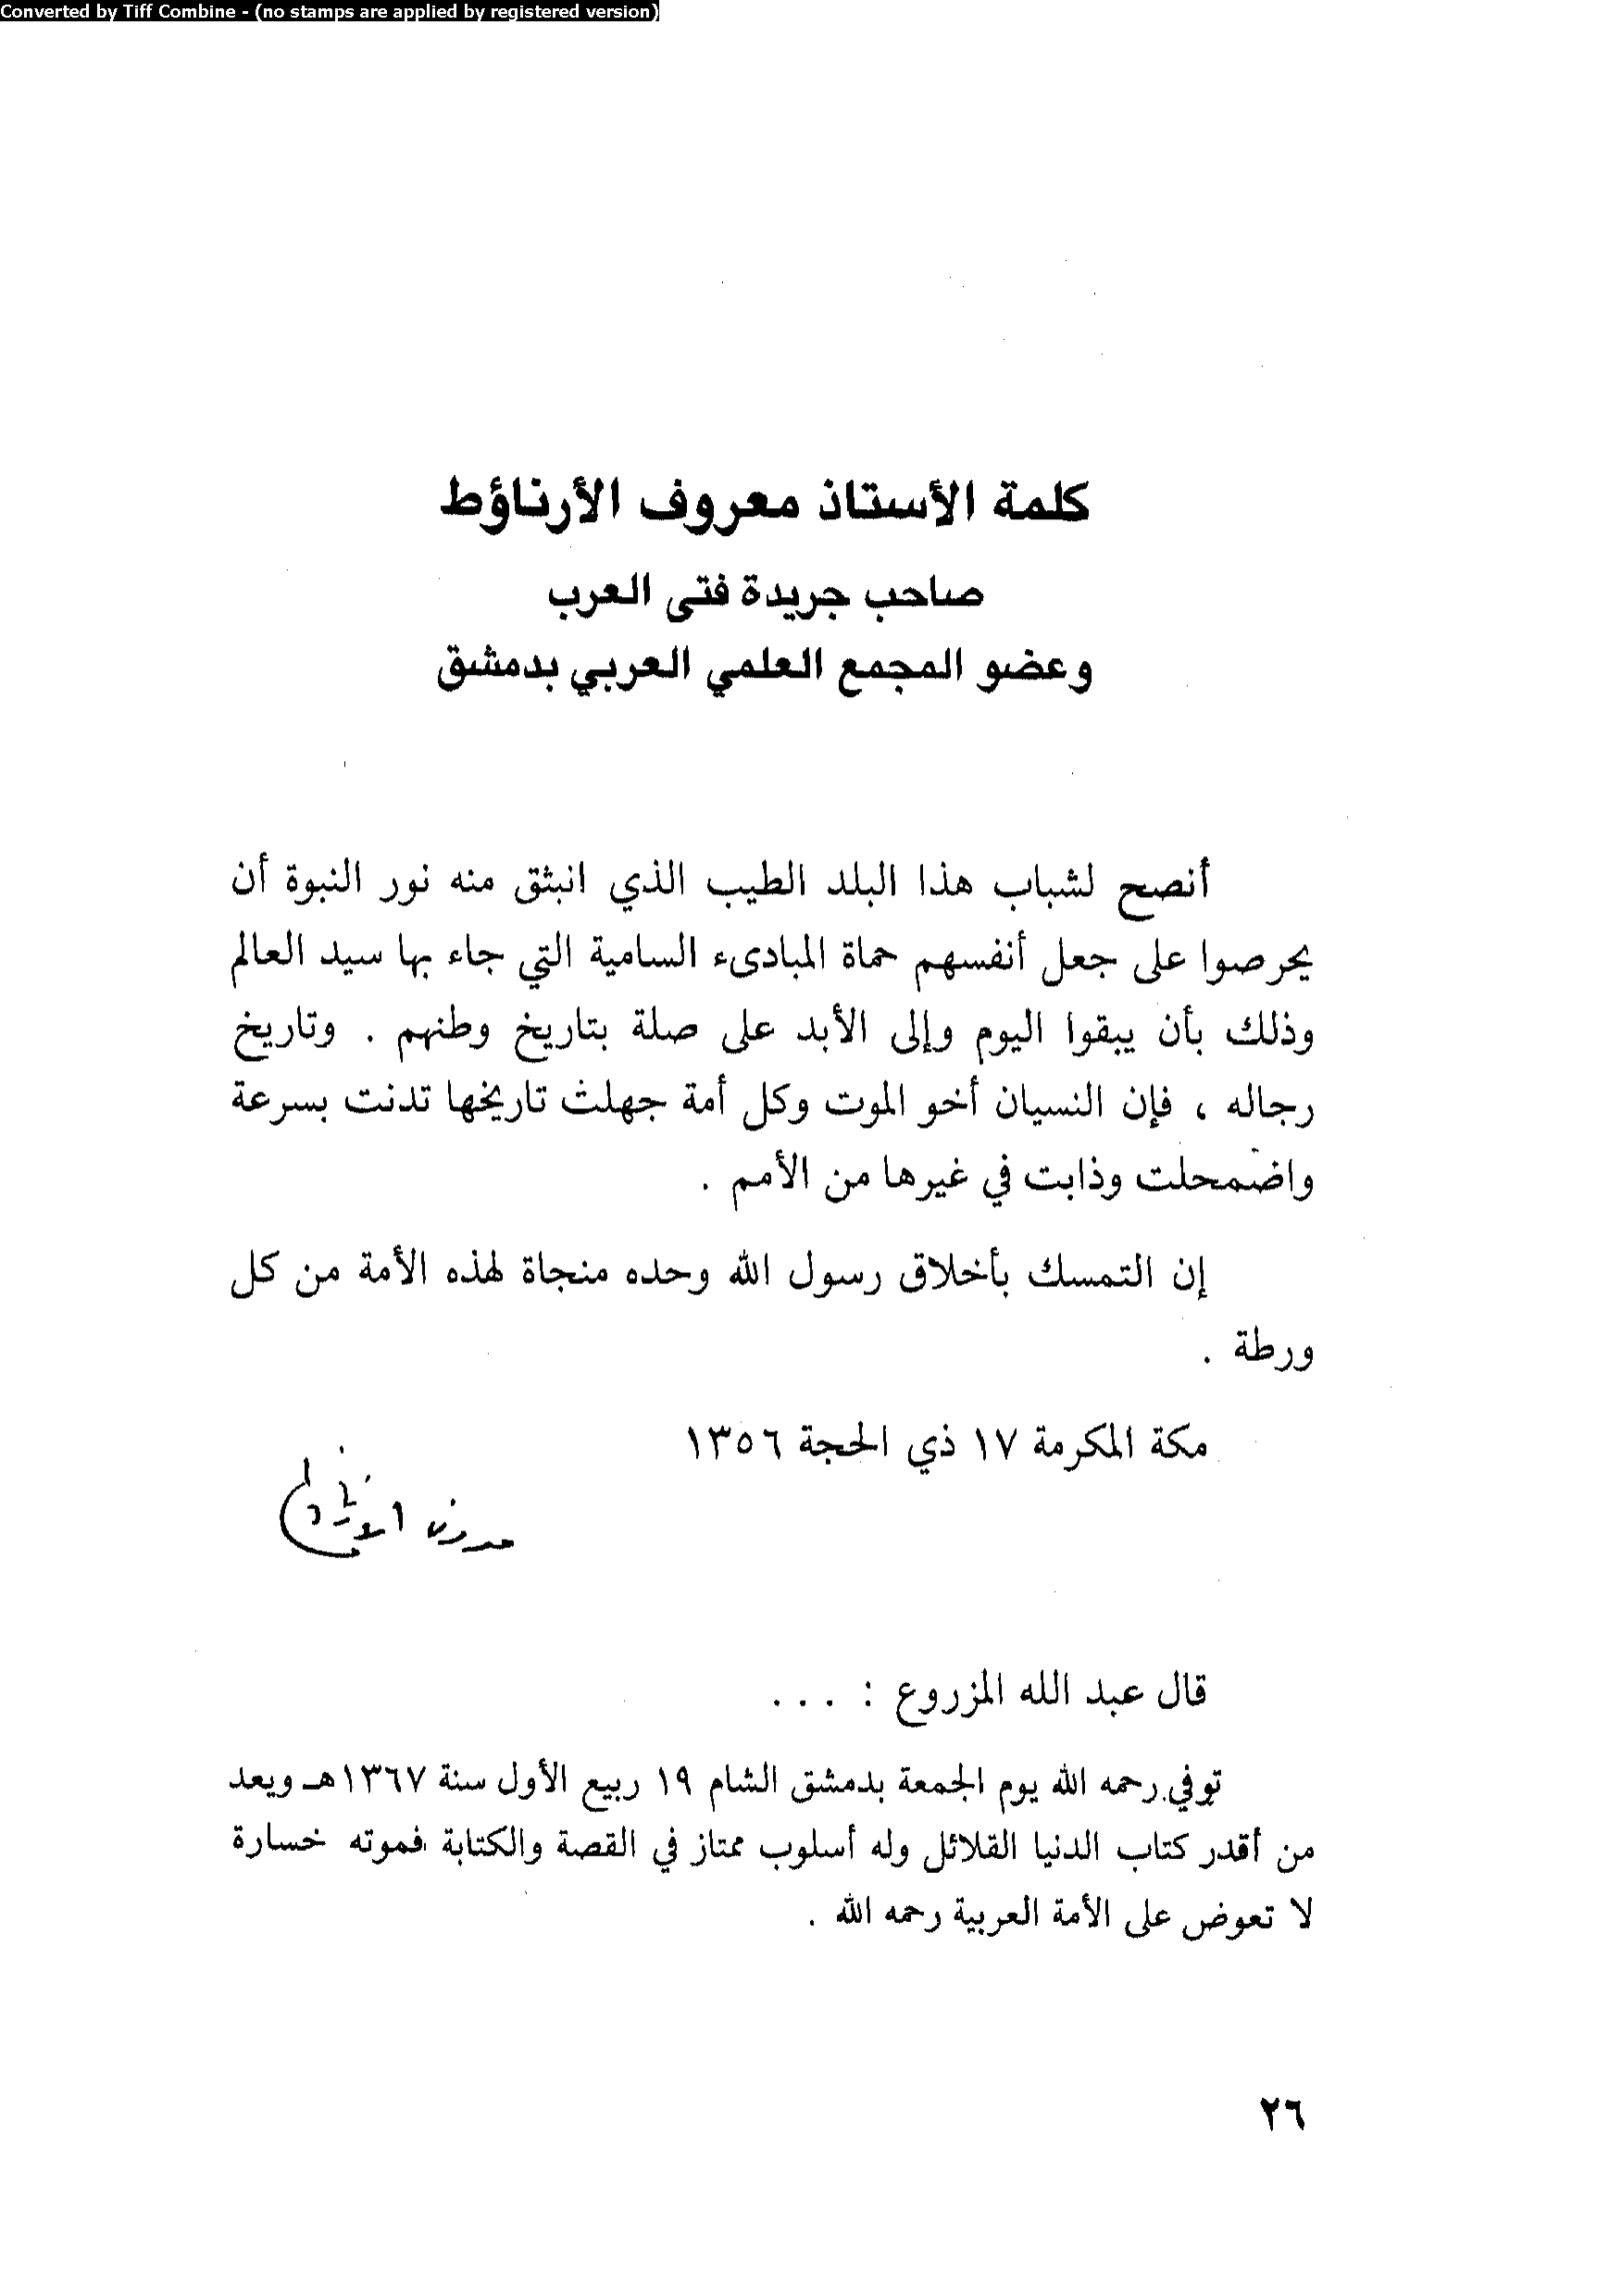 Converted by Tiff Combine - (no stamps are applied by registered version)
كلمة الأستاذ معروف الأرناؤط
صاحب جريدة فتى العرب
وعضو المجمع العلمي العربي بدمشق
أنصح لشباب هذا البلد الطيب الذي انبثق منه نور النبوة أن
يحرصوا على جعل أنفسهم حماة المبادىء السامية التي جاء بها سيد العالم
وذلك بأن يبقوا اليوم وإلى الأبد على صلة بتاريخ وطنهم . وتاريخ
رجاله ، فإن النسيان أخو الموت وكل أمة جهلت تاريخها تدنت بسرعة
واضمحلت وذابت في غيرها من الأمم .
إن التمسك بأخلاق رسول الله وحده منجاة لهذه الأمة من كل
ورطة .
مكة المكرمة ١٧ ذي الحجة ١٣٥٦
قال عبد الله المزروع : ...
توفي رحمه الله يوم الجمعة بدمشق الشام ١٩ ربيع الأول سنة ١٣٦٧هـ ويعد
من أقدر كتاب الدنيا القلائل وله أسلوب ممتاز في القصة والكتابة فموته خسارة
لا تعوض على الأمة العربية رحمه الله .
٢٦